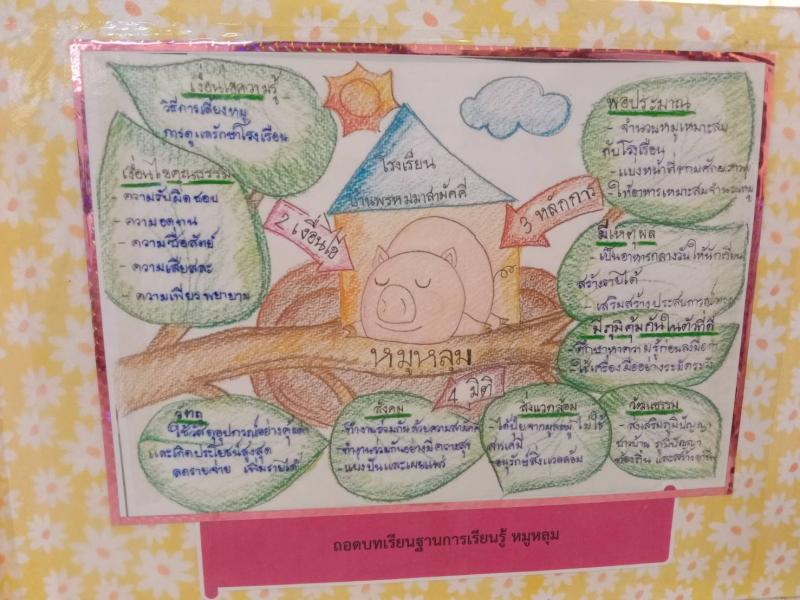 เงื่อนไขความรู้
วิธีการเลี้ยงหมู
การดูแลรักษาโรงเรือน
เงื่อนไขคุณธรรม
- ความรับผิดชอบ
- ความอดทน
- ความซื่อสัตย์
- ความเสียสละ
- ความเพียรพยายาม
โรงเรียน
บ้านพรหมมาสามัคคี
2 เงื่อนไข
3 หลักการ
หมูหลุม
4 มิติ
พอประมาณ
- จำนวนหมูเหมาะสม
กับโรงเรือน
- แบ่งหน้าที่ตามศักยภาพ
ให้อาหารเหมาะสมจำนวนหมู
มีเหตุผล
- เป็นอาหารกลางวันให้นักเรียน
สร้างรายได้
- เสริมสร้างประสบการณ์
มีภูมิคุ้มกันในตัวที่ดี
- ศึกษาหาความรู้ก่อนลงมือทำ
- ใช้เครื่องมืออย่างระมัดระวัง
วัตถุ
ใช้วัสดุอุปกรณ์อย่างคุ้มค่า
และเกิดประโยชน์สูงสุด
ลดรายจ่าย เพิ่มรายได้
สังคม
- ทำงานร่วมกันด้วยความสามัคคี
- ทำงานร่วมกันอย่างมีความสุข
- แบ่งปันและเผยแพร่
สิ่งแวดล้อม
- ได้ปุ๋ยจากมูลหมู ไม่ใช้
สารเคมี
- อนุรักษ์สิ่งแวดล้อม
วัฒนธรรม
- ส่งเสริมภูมิปัญญา
ชาวบ้าน ภูมิปัญญา
ท้องถิ่น และสร้างอาชีพ
ถอดบทเรียนฐานการเรียนรู้ หมูหลุม